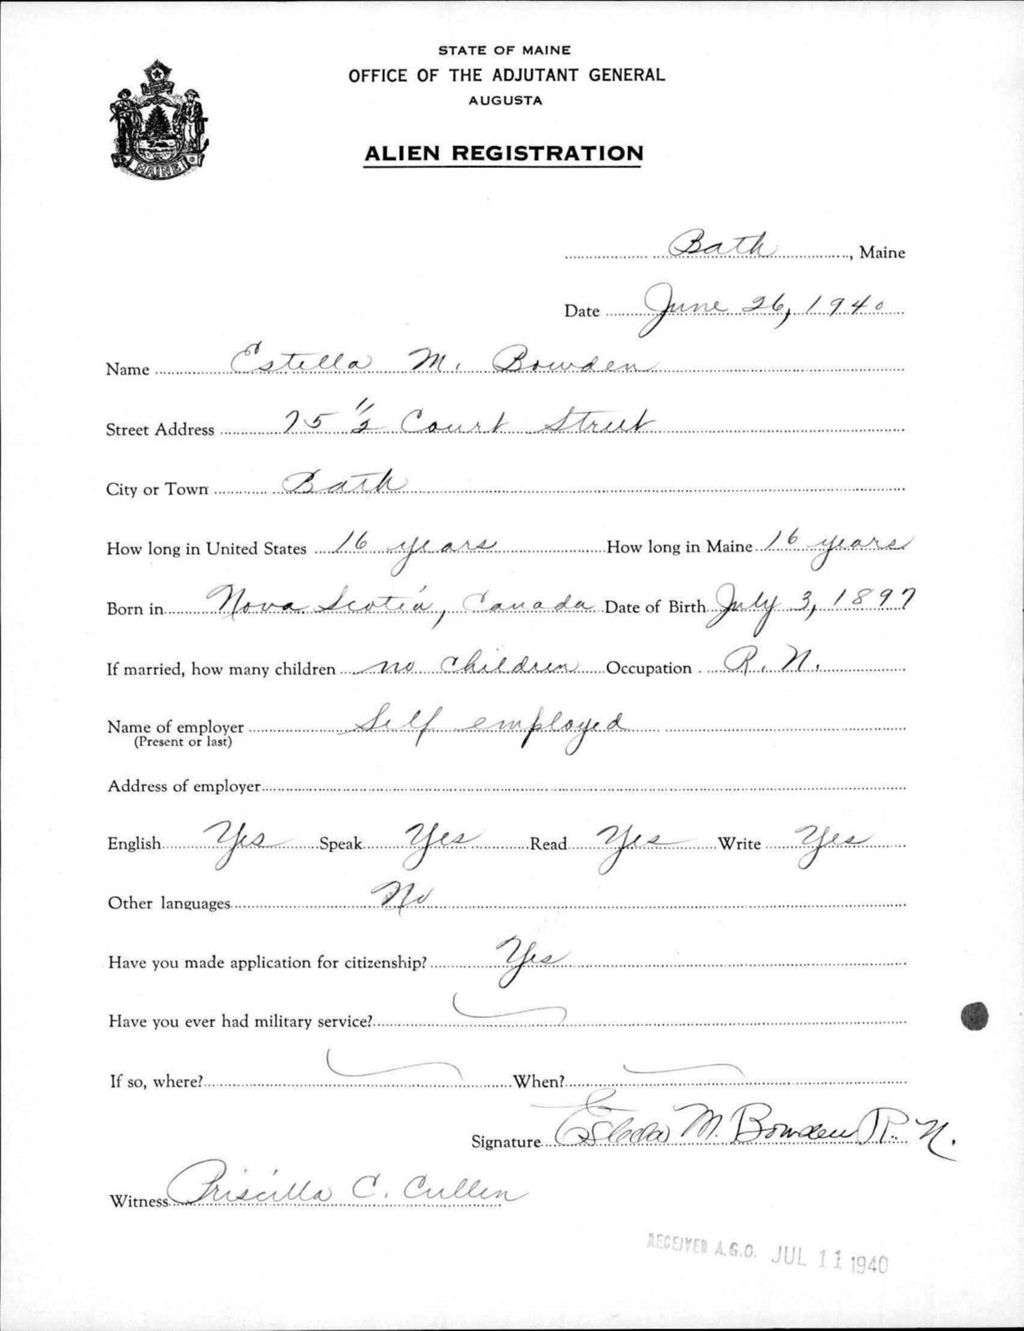 STATE OF MAINE
OFFICE OF THE ADJUTANT GENERAL
AUGUSTA
ALIEN REGISTRATION
MAINE
Bath, Maine
Date June 26, 1940
Name Estella M. Bowden
Street Address 75 1/2 Court Street
City or Town Bath
How long in United States 16 years How long in Maine 16 years
Born in Nova Scotia, Canada Date of Birth July 3, 1897
If married, how many children no children Occupation R. N.
Name of employer Self employed
(Present or last)
Address of employer
English Yes Speak Yes Read Yes Write Yes
Other languages No
Have you made application for citizenship? Yes
Have you ever had military service?
If so, where? When?
Signature Estella M. Bowden R. N.
Witness Priscilla C. Cullen
RECEIVED A.G.O. JUL 11 1940